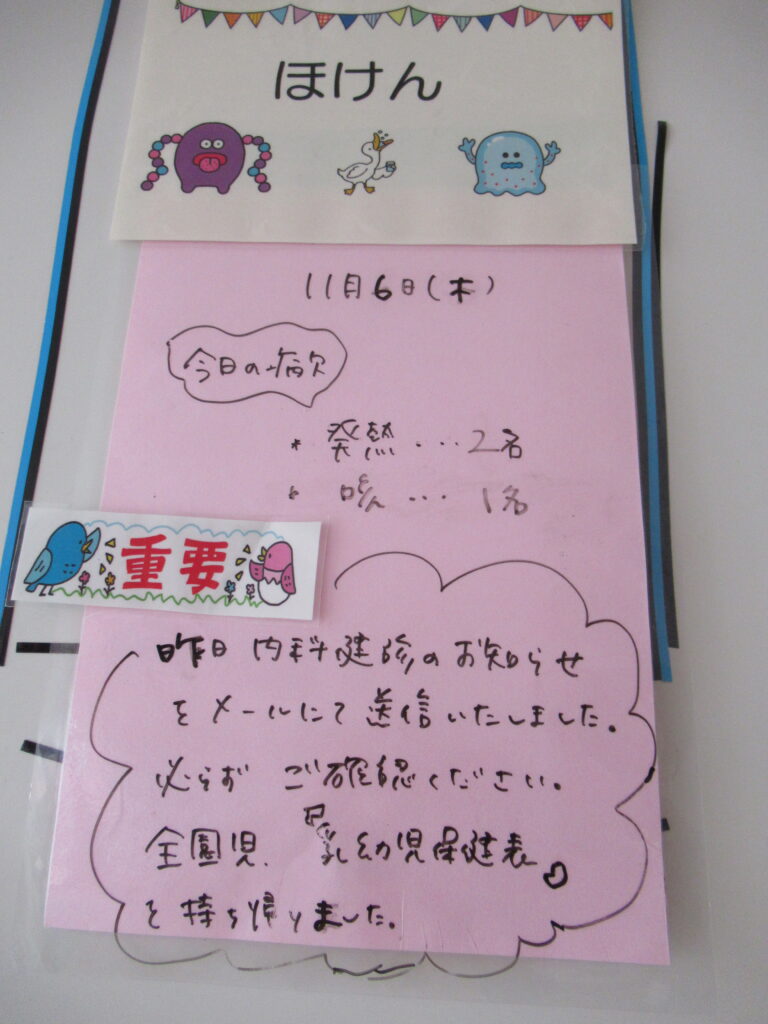 ほけん
11月6日(木)
今日の病欠
* 発熱 ... 2名
* 咳 ... 1名
重要
昨日 内科健診のお知らせ
をメールにて送信いたしました。
必らず ご確認ください。
全園児、『乳幼児保健表』
を持ち帰りました。